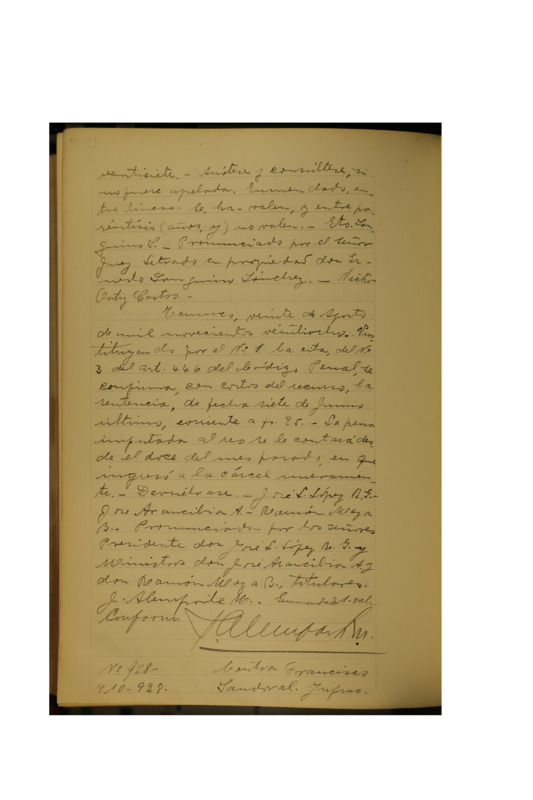 veintisiete. - Anótese y consúltese, si
no fuere apelada. Enmendado, en-
tre líneas - C, ha - valen, y entre pa-
réntisis (años, y) no valen. - Eto. San-
guino S. - Pronunciado por el señor
Juez Letrado en propiedad don Er-
nesto Sanguino Sánchez. - Victor
Orty Castro. -
Temuco, veinte de Agosto
de mil novecientos veintiocho. - Sus-
tituyendo por el No 1 la cita, del No
3 del art. 446 del Código Penal, se
confirma, con costos del recurso, la
sentencia, de fecha siete de Junio
último, corriente a fs. 25. - La pena
imputada al reo se le contará des-
de el doce del mes pasado, en que
ingresó a la cárcel nuevamen-
te. - Devuélvase. - José L. López R. G. -
José Arancibia A. - Ramón Meza
B. - Pronunciado por los señores
Presidente don José L. López R. G. y
Ministros don José Arancibia A. y
don Ramón Meza B., titulares.
J. Alemparte M. - Enmendado
Conforme
J. Alemparte M.
No 928 - Contra Francisco
928. Sandoval. Infrac.